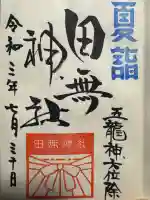 夏詣
五龍神方位除
田無神社
田無神社
令和三年七月三十日